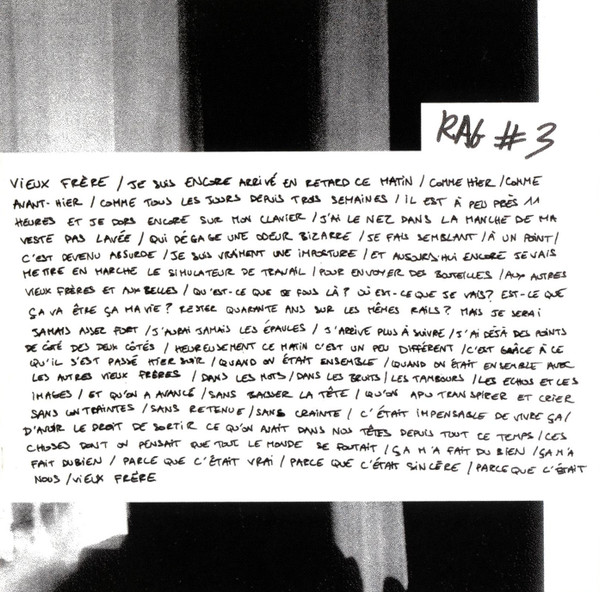 RAG #3
VIEUX FRÈRE / JE SUIS ENCORE ARRIVÉ EN RETARD CE MATIN / COMME HIER / COMME
AVANT-HIER / COMME TOUS LES JOURS DEPUIS TROIS SEMAINES / IL EST À PEU PRÈS 11
HEURES ET JE DORS ENCORE SUR MON CLAVIER / J'AI LE NEZ DANS LA MANCHE DE MA
VESTE PAS LAVÉE / QUI DÉGAGE UNE ODEUR BIZARRE / JE FAIS SEMBLANT / À UN POINT /
C'EST DEVENU ABSURDE / JE SUIS VRAIMENT UNE IMPOSTURE / ET AUJOURD'HUI ENCORE JE VAIS
METTRE EN MARCHE LE SIMULATEUR DE TRAVAIL / POUR ENVOYER DES BOUTEILLES / AUX AUTRES
VIEUX FRÈRES ET AUX BELLES / QU'EST-CE QUE JE FOUS LÀ ? OÙ EST-CE QUE JE VAIS ? EST-CE QUE
ÇA VA ÊTRE ÇA MA VIE ? RESTER QUARANTE ANS SUR LES MÊMES RAILS ? MAIS JE SERAI
JAMAIS ASSEZ FORT / J'AURAI JAMAIS LES ÉPAULES / J'ARRIVE PLUS À SUIVRE / J'AI DÉJÀ DES POINTS
DE CÔTÉ DES DEUX CÔTÉS / HEUREUSEMENT CE MATIN C'EST UN PEU DIFFÉRENT / C'EST GRÂCE À CE
QU'IL S'EST PASSÉ HIER SOIR / QUAND ON ÉTAIT ENSEMBLE / QUAND ON ÉTAIT ENSEMBLE AVEC
LES AUTRES VIEUX FRÈRES / DANS LES MOTS / DANS LES BRUITS / LES TAMBOURS / LES ECHOS ET LES
IMAGES / ET QU'ON A AVANCÉ / SANS BAISSER LA TÊTE / QU'ON A PU TRANSPIRER ET CRIER
SANS CONTRAINTES / SANS RETENUE / SANS CRAINTE / C'ÉTAIT IMPENSABLE DE VIVRE ÇA /
D'AVOIR LE DROIT DE SORTIR CE QU'ON AVAIT DANS NOS TÊTES DEPUIS TOUT CE TEMPS / CES
CHOSES DONT ON PENSAIT QUE TOUT LE MONDE SE FOUTAIT / ÇA M'A FAIT DU BIEN / ÇA M'A
FAIT DU BIEN / PARCE QUE C'ÉTAIT VRAI / PARCE QUE C'ÉTAIT SINCÈRE / PARCE QUE C'ÉTAIT
NOUS / VIEUX FRÈRE